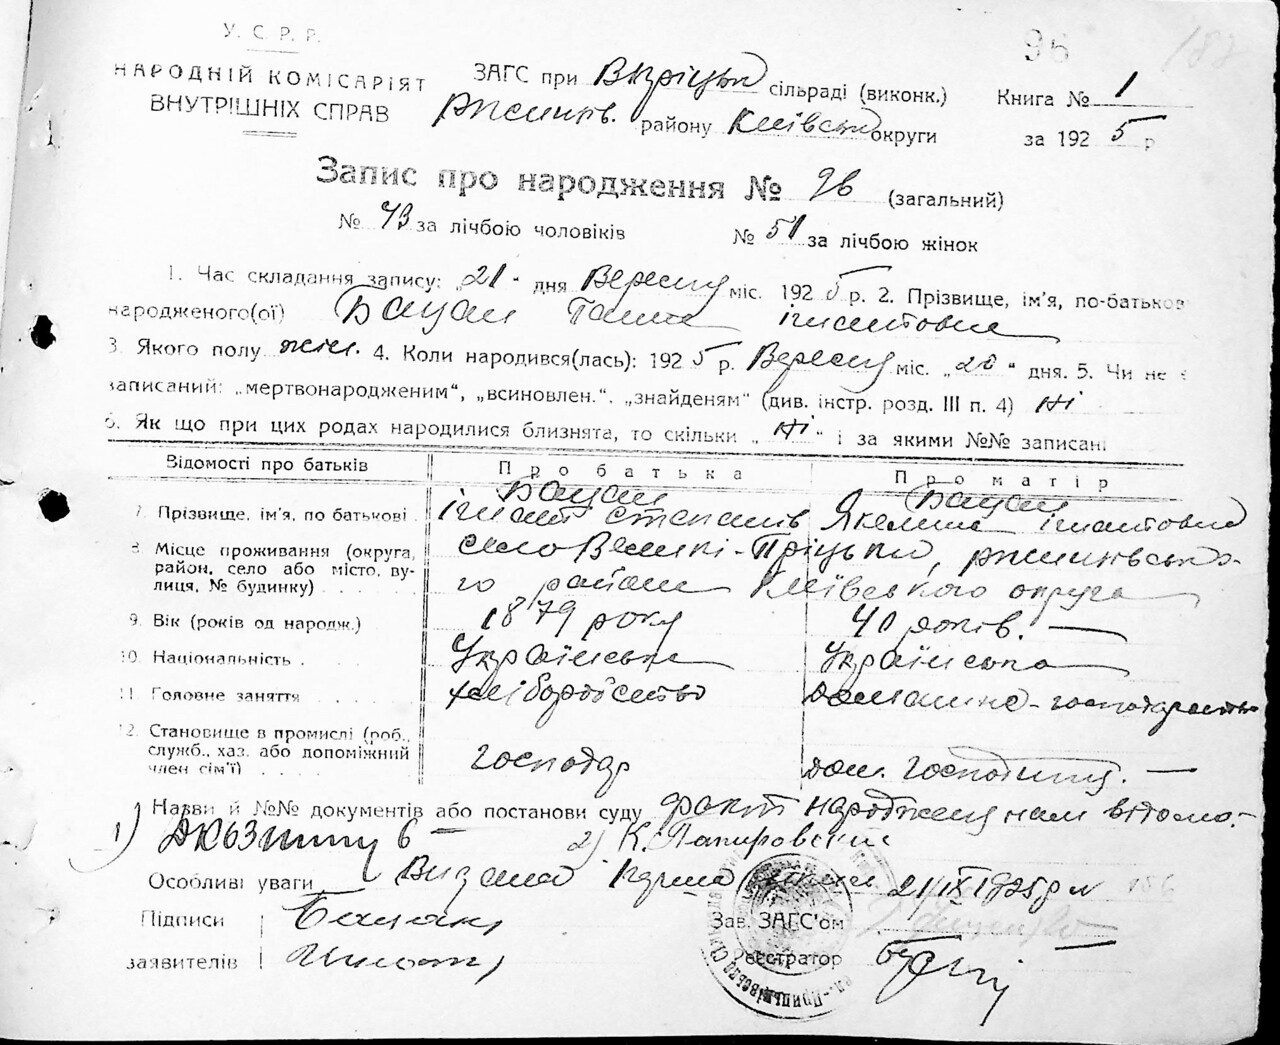 У. С. Р. Р.
96 182
НАРОДНІЙ КОМІСАРІЯТ
ВНУТРІШНІХ СПРАВ
ЗАГС при Вприцькй сільраді (виконк.) Книга № 1
Ржищів. району Київської округи за 1925 р
Запис про народження № 96 (загальний)
№ 43 за лічбою чоловіків № 51 за лічбою жінок
1. Час складання запису: „21" дня Вересня міс. 1925 р. 2. Прізвище, ім'я, по-батькові
народженого(ої) Бацан Ганна Ігнатовна
3. Якого полу жін. 4. Коли народився(лась): 1925 р. Вересня міс. „20" дня. 5. Чи не є
записаний: „мертвонародженим", „всиновлен.", „знайденям" (див. інстр. розд. III п. 4) Ні
6. Як що при цих родах народилися близнята, то скільки „Ні" і за якими №№ записані
Відомості про батьків Про батька Про матір
Бацан Бацан
7. Прізвище, ім'я, по батькові Ігнат Степанів Якелина Ігнатовна
8. Місце проживання (округа, село Великі-Пріцьки, Ржищівсько-
район, село або місто, ву-
лиця, № будинку) го району Київського округа
9. Вік (років од народж.) 1879 року 40 років.
10. Національність Українська Українська
11. Головне заняття хліборобство домашнє-господарство
12. Становище в промислі (роб.,
служб., хаз. або допоміжний
член сім'ї) господар дом. господиня.
Назви й №№ документів або постанови суду факт народженя нам відомо.
1) 2) К. Папировский
Особливі уваги Видана 21/IX 1925 р № 156
Підписи Бацан Зав. ЗАГС'ом
заявителів Игнат Реєстратор